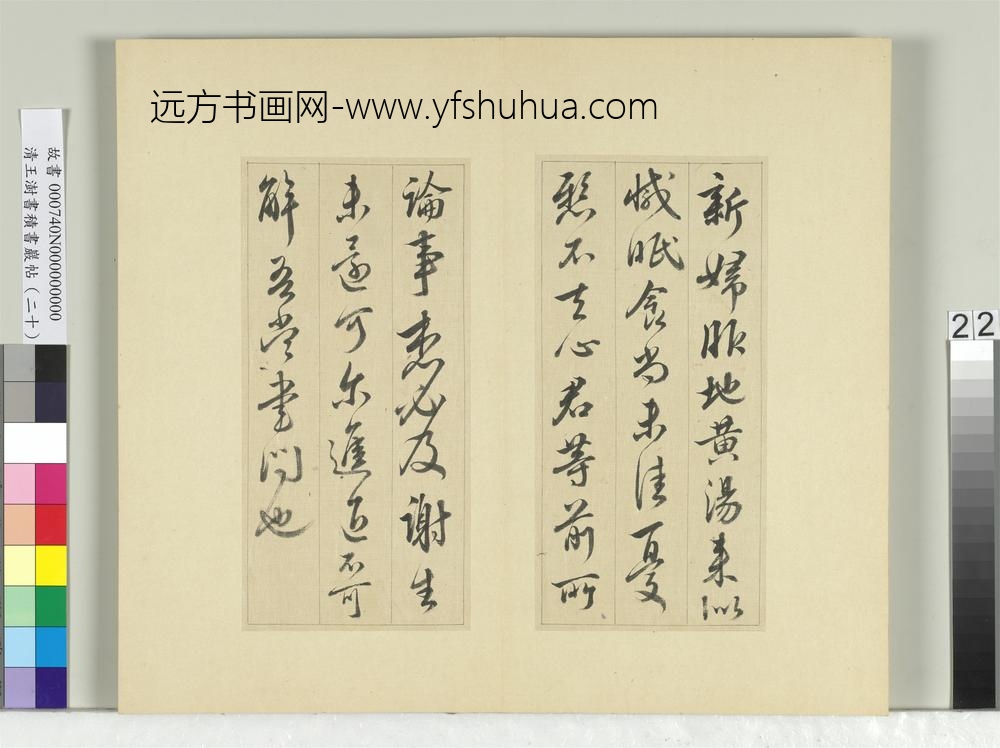 远方书画网-www.yfshuhua.com
新婦服地黃湯来似
減眠食尚未佳憂
懸不去心君等前所
論事想必及謝生
未還可尔進退不可
解吾当書問也
故書 000740N000000000
清王澍書積書巖帖(二十)
22